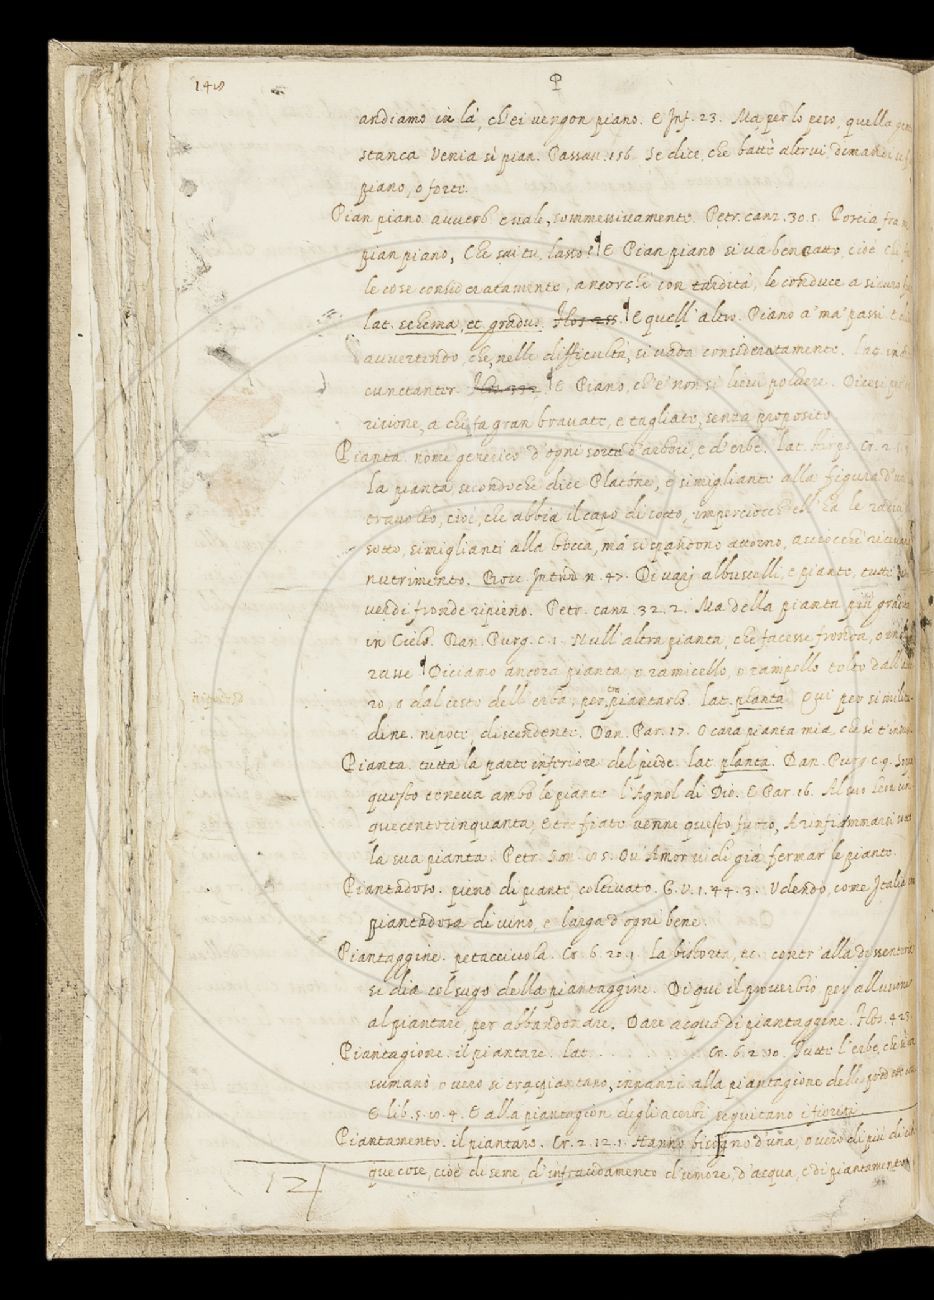 148
P
andiamo in là, ch'ei vengon piano. E Inf. 23. Ma per lo peso, quella
stanca Venia sì pian. Passav. 156. Se dice, che battè altrui, domandi
piano, o forte.
Pian piano avverb e vale, sommessivamente. Petr. canz. 30. 5. Poscia fra
pian piano, Che sai tu, lasso? E Pian piano si va ben ratto, cioè Chi
le cose consideratamente, ancorchè con tardità, le conduce a sicuro
lat. schema, et gradus. E quell' altro. Piano a' ma' passi
avvertendo, che, nelle difficultà, si vada consideratamente. lat.
cunctanter. E Piano, ch'e' non si lievi polvere. Dicesi per
risione, a chi fa gran bravate, e tagliate, senza proposito
Pianta. nome generico d'ogni sorta d'arbori, e d'erbe. Lat. Cr. 2.
La pianta secondochè dice Platone, è simigliante alla figura d'un
travolto, cioè, che abbia il capo di sotto, imperciocch' ell' ha le radici
sotto, simiglianti alla bocca, ma si spandono attorno, acciocchè ricevano
nutrimento. Bocc. Introd n. 47. Di varj albuscelli, e piante, tutti di
verdi fronde ripieno. Petr. canz. 32. 2. Ma della pianta più gradita
in Cielo. Dan. Purg. c. 1. Null' altra pianta, che facesse fronda, o
rasse Diciamo ancora pianta, o ramicello, o rampollo tolto dall'
ro, o dal cesto dell' erba, per piantarlo. lat. planta. Qui per simili-
dine. nipoti, discendenti. Dan. Par. 17. O cara pianta mia, che sì
Pianta. tutta la parte inferiore del piede. lat. planta. Dan. Purg. c. 9. Sovra
questo teneva ambo le piante l'Agnol di Dio. E Par. 16. Al suo Leon
quecentocinquanta, E tre fiate venne questo fuoco, A rinfiammarsi sotto
la sua pianta. Petr. Son. 85. Ov' Amor vidi già fermar le piante.
Piantadoso. pieno di piante coltivato. G. V. 1. 44. 3. Udendo, come Italia
piantadosa di vino, e larga d'ogni bene.
Piantaggine. petacciuola. Cr. 6. 20. 1. La bistorta, ec. contr' alla dissenteria
si dia col sugo della piantaggine. Di qui il proverbio per allusione
al piantare, per abbandonare. Dare acqua di piantaggine. Flos. 423
Piantagione. il piantare. lat. . . . Cr. 6. 2. 10. Tutte l'erbe, che si
sumano, o vero si traspiantano, innanzi alla piantagione delle
E lib. 5. 10. 4. E alla piantagion degli acerbi seguitano i fiorini
Piantamento. il piantare. Cr. 2. 12. 1. Hanno bisogno d'una, o vero di più di
que cose, cioè di seme, d'infracidamento d'umore, d'acqua, e di piantamento
12